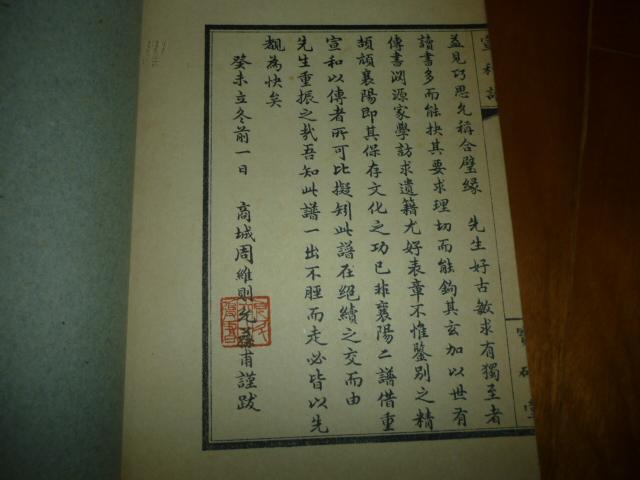 宣和譜
益見巧思允稱合璧緣　先生好古敏求有獨至者
讀書多而能抉其要求理切而能鉤其玄加以世有
傳書淵源家學訪求遺籍尤好表章不惟鑒別之精
頡頏襄陽即其保存文化之功已非襄陽二譜借重
宣和以傳者所可比擬矧此譜在絕續之交而由
先生重振之哉吾知此譜一出不脛而走必皆以先
覩為快矣
癸未立冬前一日　商城周維則允甫謹跋